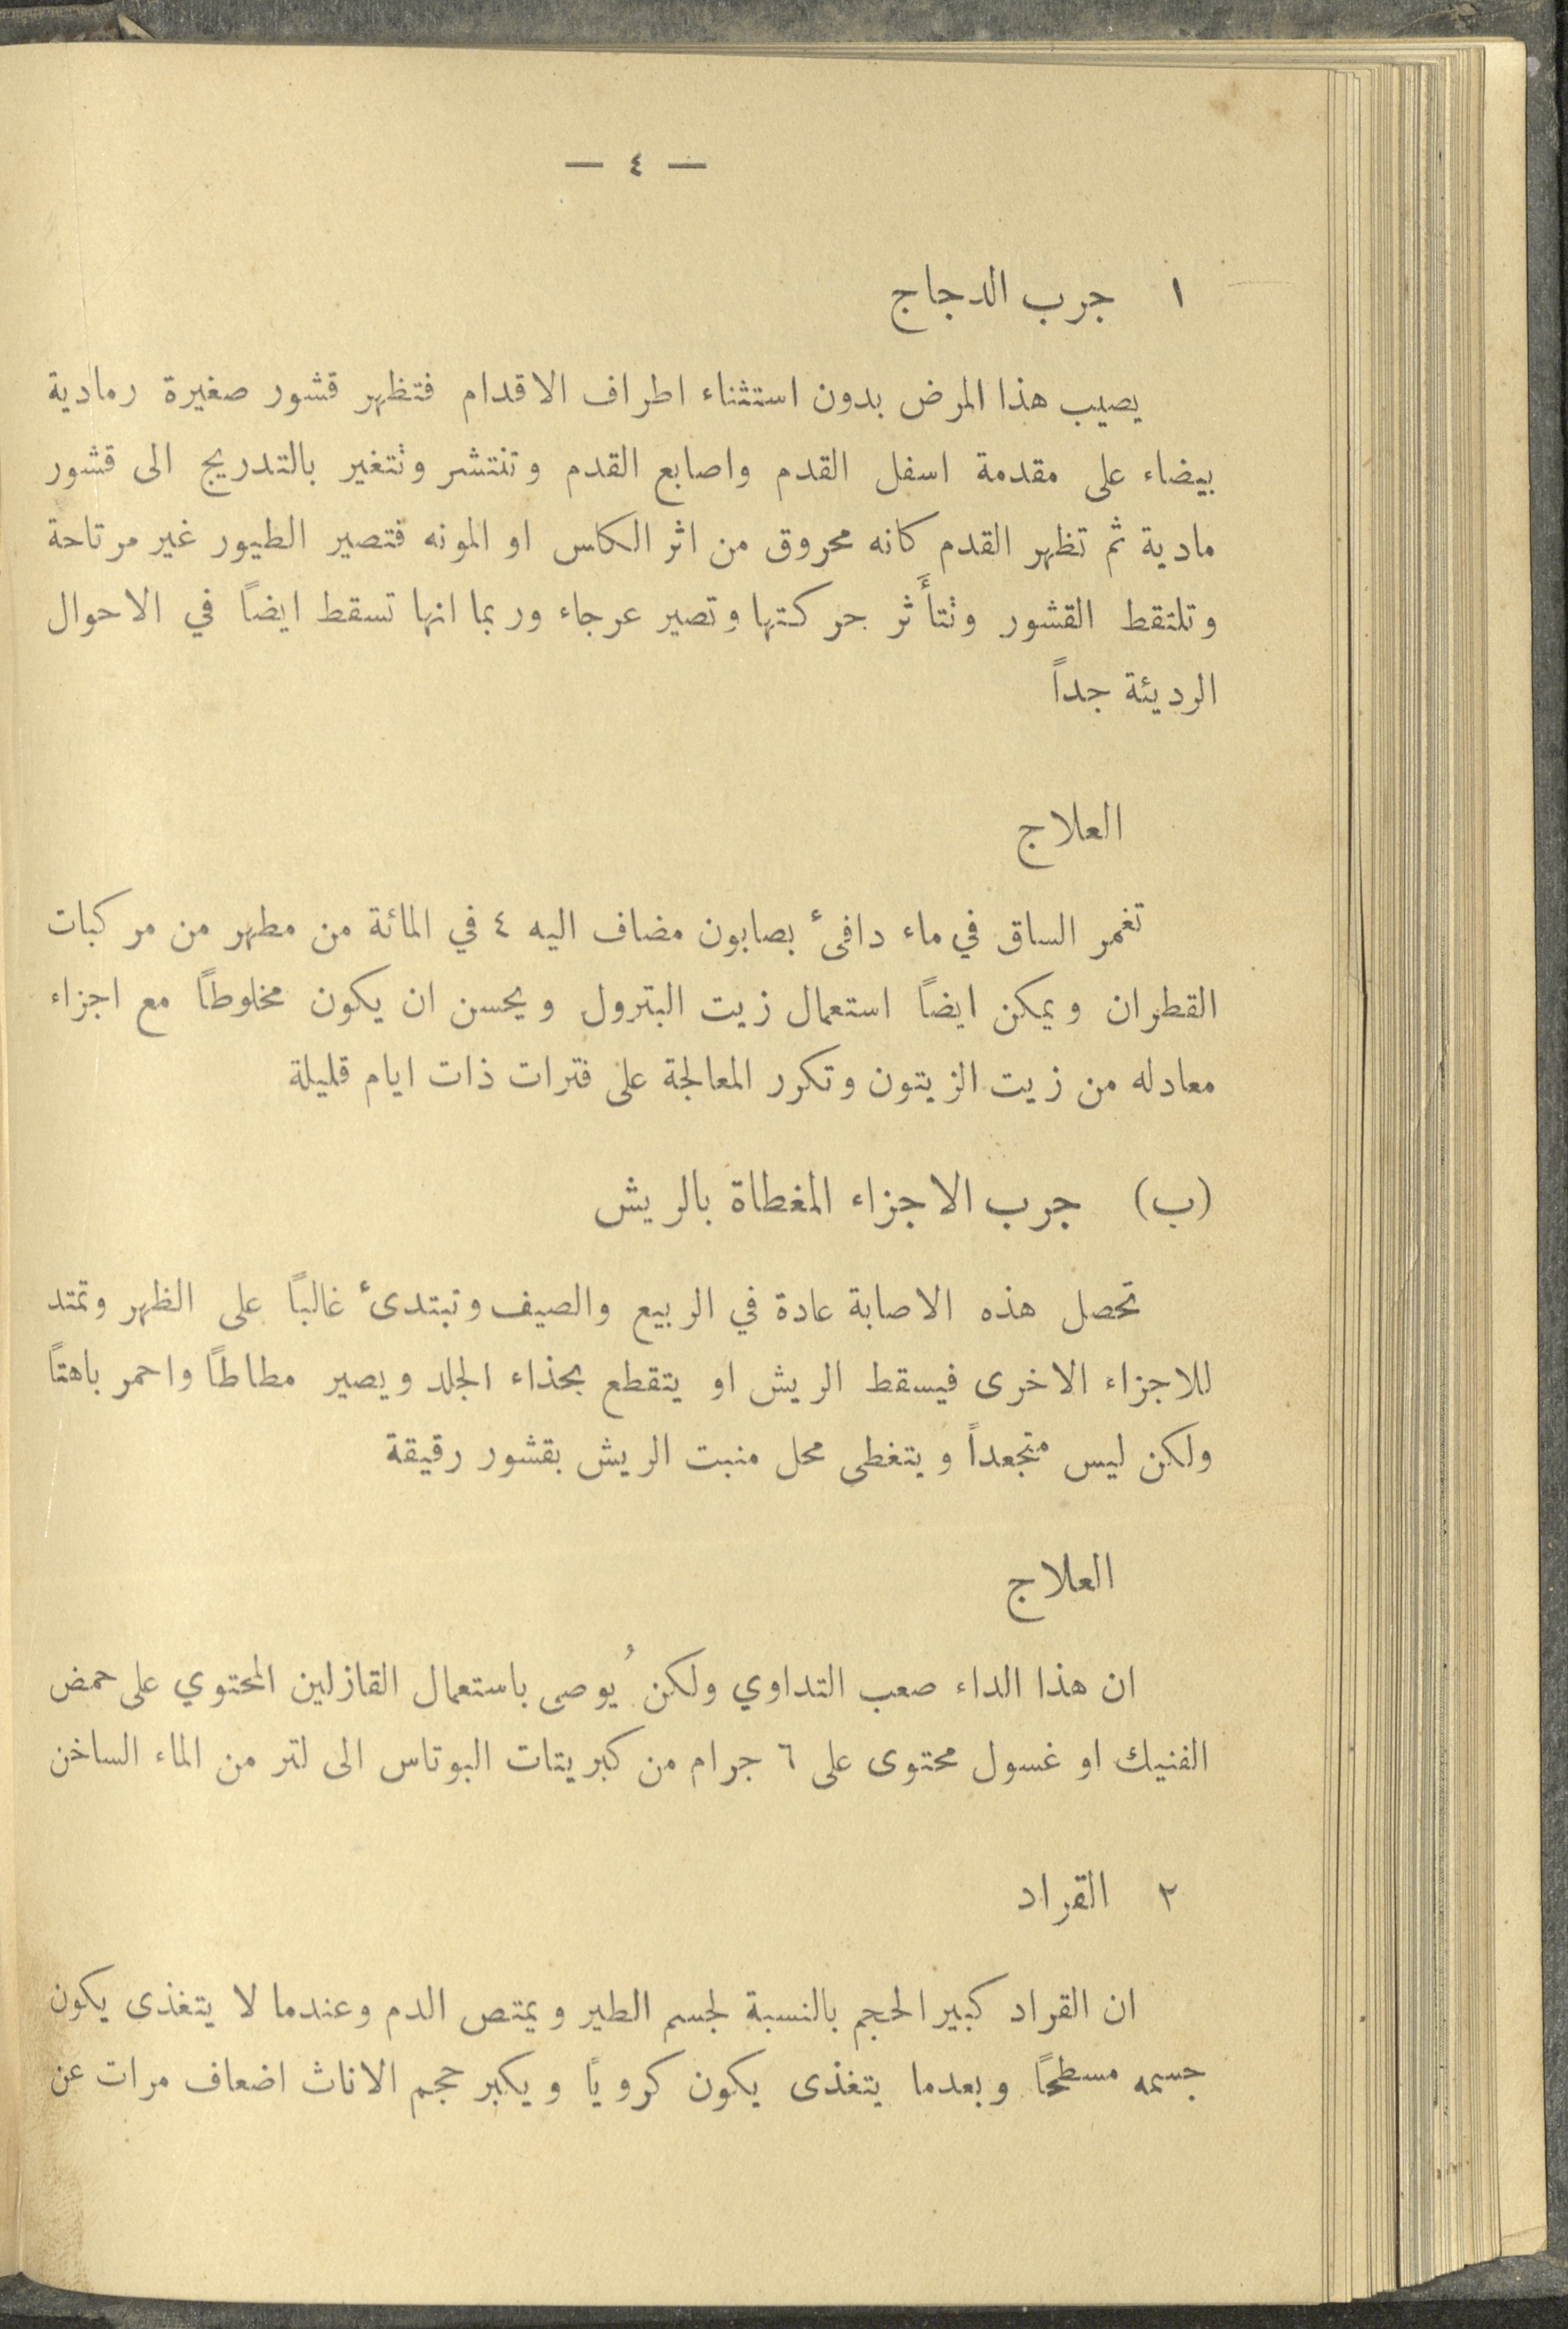 — ٤ —
١ جرب الدجاج
يصيب هذا المرض بدون استثناء اطراف الاقدام فتظهر قشور صغيرة رمادية
بيضاء على مقدمة اسفل القدم واصابع القدم وتنتشر وتتغير بالتدريج الى قشور
مادية ثم تظهر القدم كانه محروق من اثر الكاس او المونه فتصير الطيور غير مرتاحة
وتلتقط القشور وتتأَثر حركتها وتصير عرجاء وربما انها تسقط ايضاً في الاحوال
الرديئة جداً
العلاج
تغمر الساق في ماء دافئ بصابون مضاف اليه ٤ في المائة من مطهر من مركبات
القطران ويمكن ايضاً استعمال زيت البترول ويحسن ان يكون مخلوطاً مع اجزاء
معادله من زيت الزيتون وتكرر المعالجة على فترات ذات ايام قليلة
(ب) جرب الاجزاء المغطاة بالريش
تحصل هذه الاصابة عادة في الربيع والصيف وتبتدئ غالباً على الظهر وتمتد
للاجزاء الاخرى فيسقط الريش او يتقطع بحذاء الجلد ويصير مطاطاً واحمر باهتاً
ولكن ليس متجعداً ويتغطى محل منبت الريش بقشور رقيقة
العلاج
ان هذا الداء صعب التداوي ولكن يُوصى باستعمال القازلين المحتوي على حمض
الفنيك او غسول محتوى على ٦ جرام من كبريتات البوتاس الى لتر من الماء الساخن
٢ القراد
ان القراد كبير الحجم بالنسبة لجسم الطير ويمتص الدم وعندما لا يتغذى يكون
جسمه مسطحاً وبعدما يتغذى يكون كروياً ويكبر حجم الاناث اضعاف مرات عن